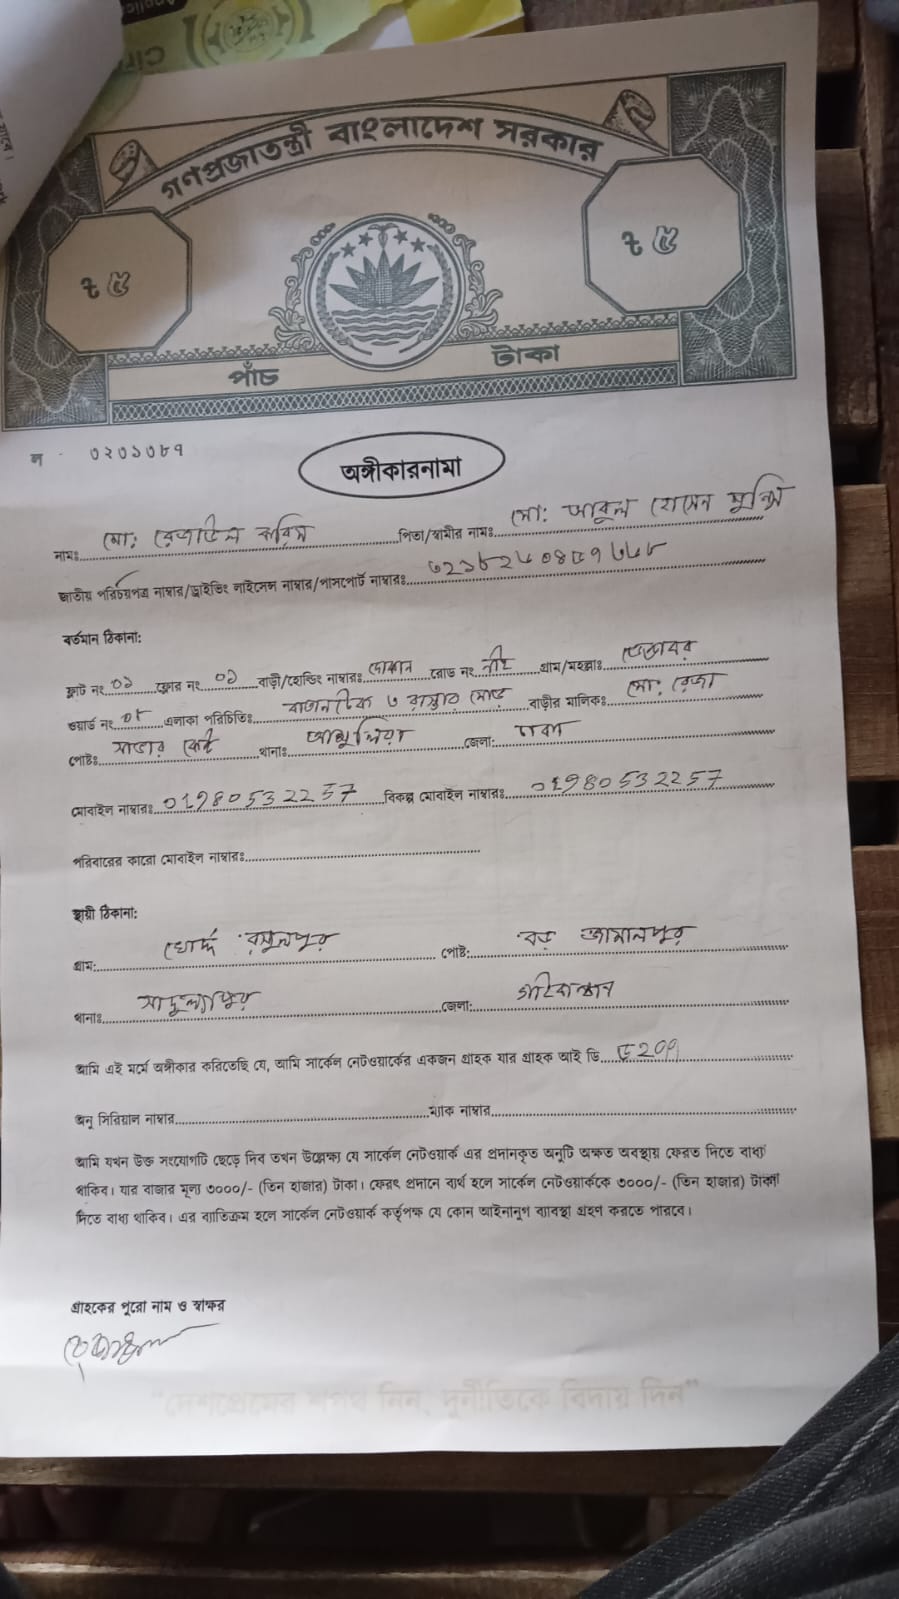 গণপ্রজাতন্ত্রী বাংলাদেশ সরকার
৳ ৫
৳ ৫
পাঁচ টাকা
ল ৩২০১৩৮৭
অঙ্গীকারনামা
নামঃ মোঃ রেজাউল করিম পিতা/স্বামীর নামঃ মোঃ আবুল হোসেন মুন্সি
জাতীয় পরিচয়পত্র নাম্বার/ড্রাইভিং লাইসেন্স নাম্বার/পাসপোর্ট নাম্বারঃ
বর্তমান ঠিকানা:
ফ্লাট নং ০১ ফ্লোর নং ০১ বাড়ী/হোল্ডিং নাম্বারঃ দোকান রোড নং নাই গ্রাম/মহল্লাঃ
ওয়ার্ড নং ০৮ এলাকা পরিচিতিঃ ৩ রাস্তার মোড় বাড়ীর মালিকঃ মোঃ রেজা
পোষ্টঃ সাভার কেন্ট থানাঃ আশুলিয়া জেলা: ঢাকা
মোবাইল নাম্বারঃ 01980532257 বিকল্প মোবাইল নাম্বারঃ 01980532257
পরিবারের কারো মোবাইল নাম্বারঃ
স্থায়ী ঠিকানা:
গ্রাম: খোর্দ্দ রসুলপুর পোষ্ট: বড় জামালপুর
থানাঃ সাদুল্যাপুর জেলা: গাইবান্ধা
আমি এই মর্মে অঙ্গীকার করিতেছি যে, আমি সার্কেল নেটওয়ার্কের একজন গ্রাহক যার গ্রাহক আই ডি
অনু সিরিয়াল নাম্বার ম্যাক নাম্বার
আমি যখন উক্ত সংযোগটি ছেড়ে দিব তখন উল্লেক্ষ্য যে সার্কেল নেটওয়ার্ক এর প্রদানকৃত অনুটি অক্ষত অবস্থায় ফেরত দিতে বাধ্য
থাকিব। যার বাজার মূল্য ৩০০০/- (তিন হাজার) টাকা। ফেরৎ প্রদানে ব্যর্থ হলে সার্কেল নেটওয়ার্ককে ৩০০০/- (তিন হাজার) টাকা
দিতে বাধ্য থাকিব। এর ব্যতিক্রম হলে সার্কেল নেটওয়ার্ক কর্তৃপক্ষ যে কোন আইনানুগ ব্যাবস্থা গ্রহণ করতে পারবে।
গ্রাহকের পুরো নাম ও স্বাক্ষর
"দেশপ্রেমের শপথ নিন, দুর্নীতিকে বিদায় দিন"